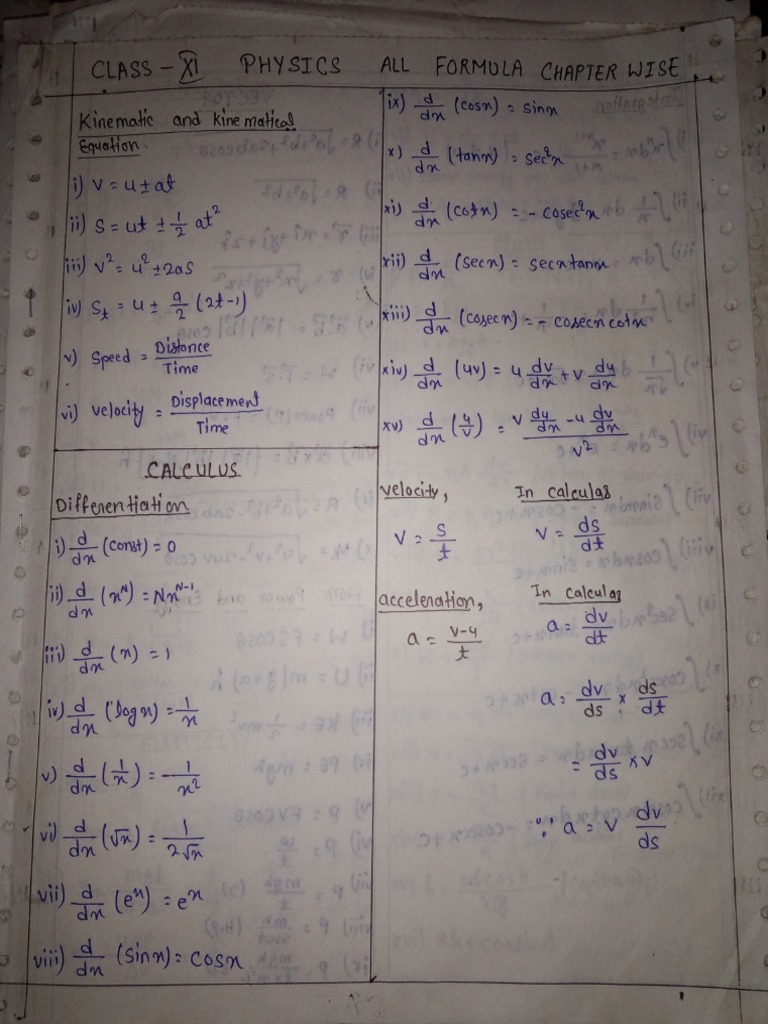 CLASS - XI PHYSICS ALL FORMULA CHAPTER WISE
Kinematic and kinematical
Equation.
i) v = u ± at
ii) S = ut ± 1/2 at²
iii) v² = u² ± 2as
iv) St = u ± a/2 (2t-1)
v) Speed = Distance/Time
vi) velocity = Displacement/Time
CALCULUS
Differentiation
i) d/dx (const) = 0
ii) d/dx (x^N) = Nx^N-1
iii) d/dx (x) = 1
iv) d/dx (logx) = 1/x
v) d/dx (1/x) = -1/x²
vi) d/dx (√x) = 1/2√x
vii) d/dx (e^x) = e^x
viii) d/dx (sinx) = cosx
ix) d/dx (cosx) = sinx
x) d/dx (tanx) = sec²x
xi) d/dx (cotx) = - cosec²x
xii) d/dx (secx) = secxtanx
xiii) d/dx (cosecx) = - cosecx cotx
xiv) d/dx (uv) = u dv/dx + v du/dx
xv) d/dx (u/v) = v du/dx - u dv/dx / v²
velocity, In calculas
v = s/t v = ds/dt
acceleration, In calculas
a = v-u/t a = dv/dt
a = dv/ds × ds/dt
= dv/ds × v
∵ a = v dv/ds